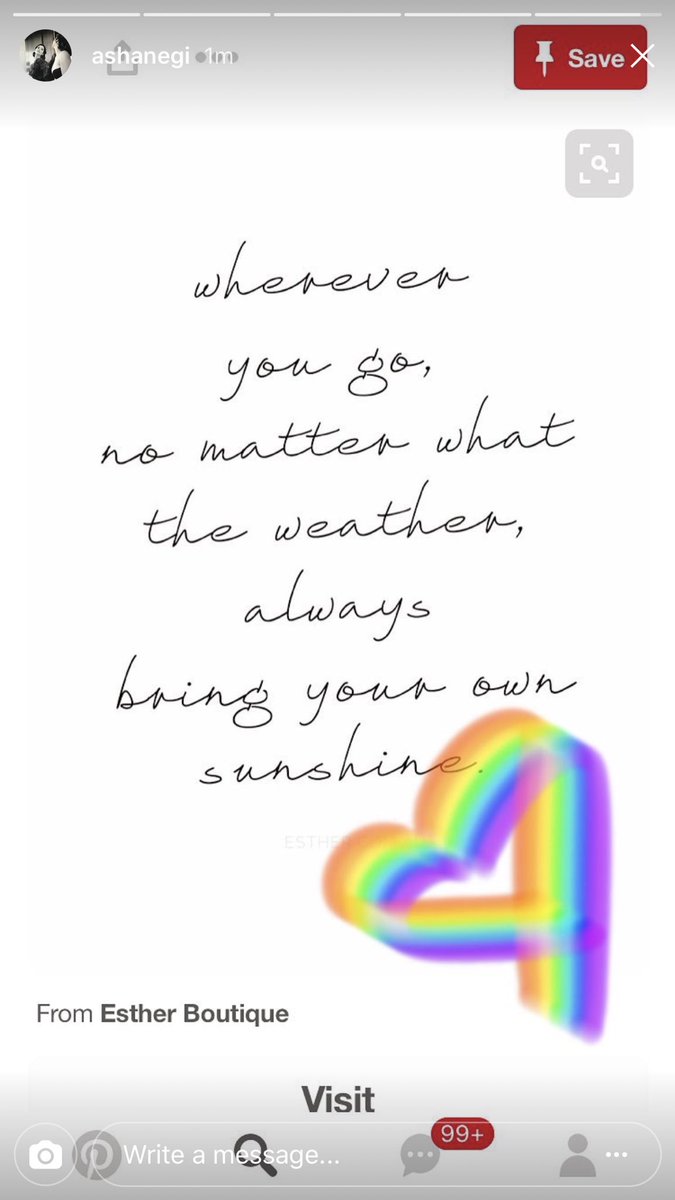 ashanegi 1m
Save
wherever
you go,
no matter what
the weather,
always
bring your own
sunshine.
From Esther Boutique
Visit
99+
Write a message...